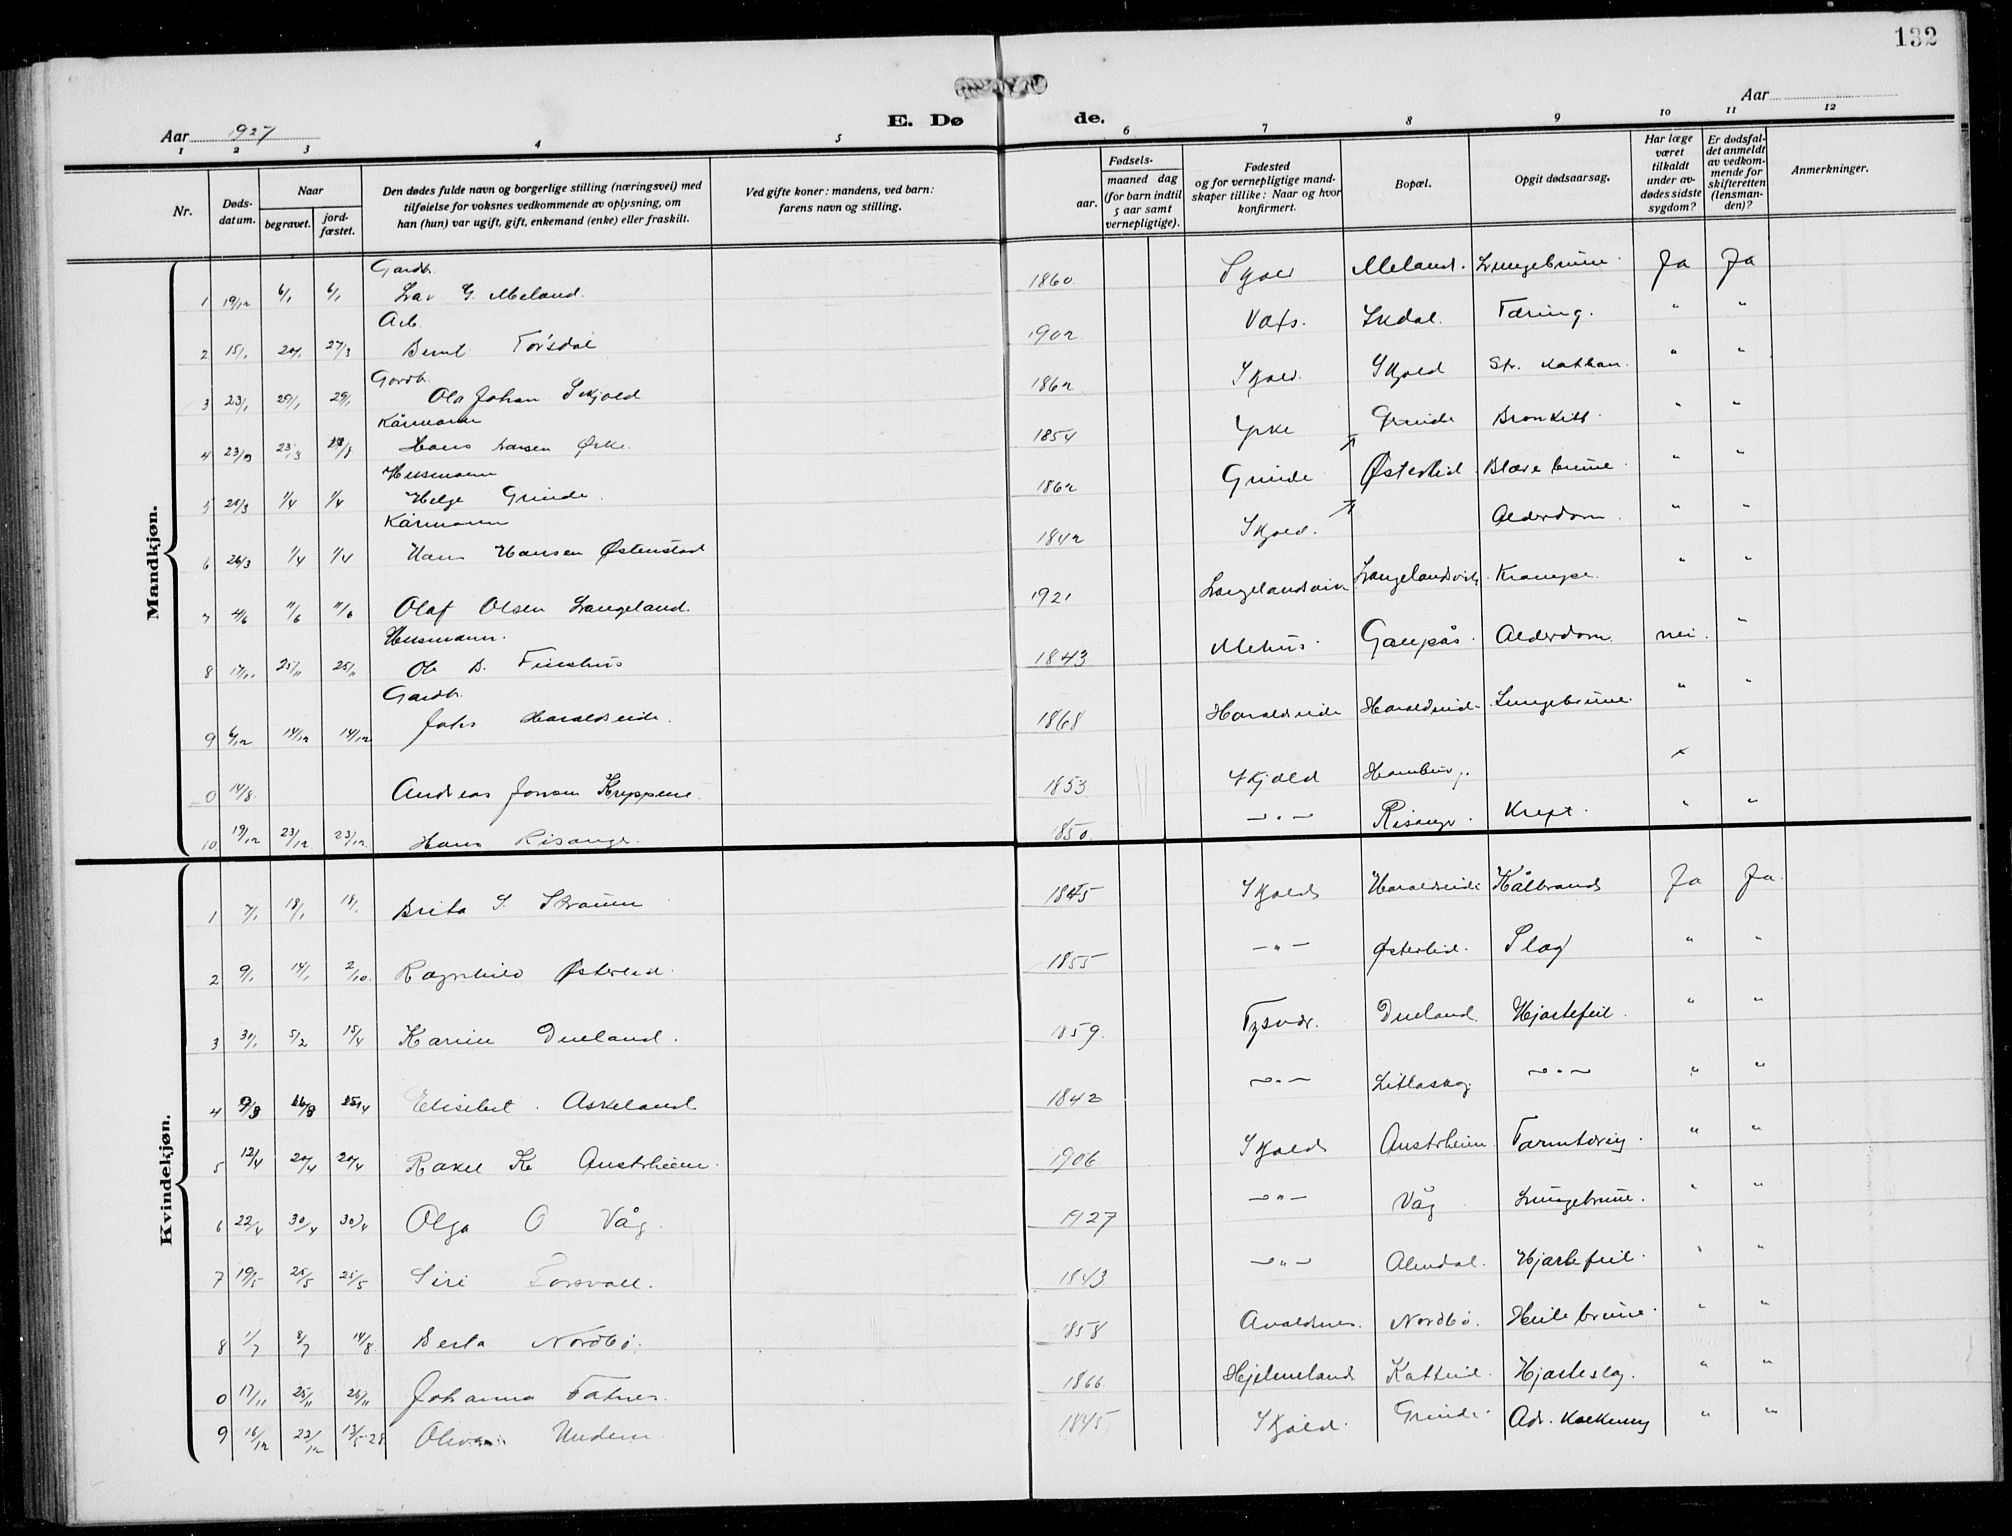 132
E. Døde.
Aar 1927
Aar
1 2 3 4 5 6 7 8 9 10 11 12
Nr.
Døds-datum.
Naar
begravet.
jord-fæstet.
Den dødes fulde navn og borgerlige stilling (næringsvei) med tilføielse for voksnes vedkommende av oplysning, om han (hun) var ugift, gift, enkemand (enke) eller fraskilt.
Ved gifte koner: mandens, ved barn: farens navn og stilling.
Fødsels-
aar.
maaned dag
(for barn indtil 5 aar samt vernepligtige).
Fødested og for vernepligtige mandskaper tillike: Naar og hvor konfirmert.
Bopæl.
Opgit dødsaarsag.
Har læge været tilkaldt under avdødes sidste sygdom?
Er dødsfaldet anmeldt av vedkommende for skifteretten (lensmanden)?
Anmerkninger.
Mandkjøn.
Gardbr.
1 19/12 6/1 6/1 Lar G. Meland. 1860 Skjold Meland. Lungebrune. Ja Ja
Arb.
2 15/1 20/1 27/3 Bernt Torsdal 1902 Vats. Tæring. " "
Gardbr.
3 23/1 29/1 29/1 Ola Johan Skjold 1862 Skjold. Skjold Str. Kathar. " "
Kårmann
4 23/3 Hans Larsen Ørke. 1854 Yrke Grinde Bronkitt. " "
Husmann
5 25/3 1/4 1/4 Helge Grinde. 1862 Grinde Østerlid Blære brune. " "
Kårmann
6 26/3 1/4 1/4 Hans Hansen Østenstad 1842 Skjold. Alderdom. " "
7 4/6 11/6 11/6 Olaf Olsen Langeland. 1921 Langelandsvik Langelandsvik Krampe. " "
Husmann.
8 17/11 25/11 25/11 Ole B. Finshus 1843 Mehus. Gaupås. Alderdom. nei. "
Gardbr.
9 6/12 14/12 14/12 Johs Haraldseide. 1868 Haraldseide Haraldseid. Lungebrune. " "
0 14/8 Andreas Jonsen Kreppene. 1853 Skjold Hamburg.
10 19/12 23/12 23/12 Hans Risanger. 1850 -"- Risanger. Kreft. " "
Kvindekjøn.
1 7/1 18/1 18/1 Brita S. Straum 1845 Skjold Haraldseide Kålbrand Ja Ja.
2 9/1 14/1 2/10. Ragnhild Østerlid. 1855 -"- Østerlid. Slag " "
3 31/1 5/2 15/4 Karine Dueland. 1859. Tysvær. Dueland. Hjartefeil. " "
4 9/3 16/3 15/4 Elisebet Askeland 1842 -"- Litlaskog -"- " "
5 12/4 20/4 20/4 Rakel K Austrheim. 1906 Skjold Austrheim Tarmtæring. " "
6 22/4 30/4 30/4 Olga O Våg 1927 -"- Våg Lungebrune. " "
7 19/5 25/5 25/5 Siri Torsvall. 1843 -"- Alendal. Hjartefeil. " "
8 1/7 8/7 14/8 Berta Nordbø. 1858 Avaldnes. Nordbø. Heilebrune. " "
0 17/11 25/11 25/11 Johanna Fatnes. 1866. Hjelmeland Katteid. Hjarteslag. " "
9 16/12 22/12 13/5-28 Undem 1845 Skjold. Grinde. Adr. Kalkning " "